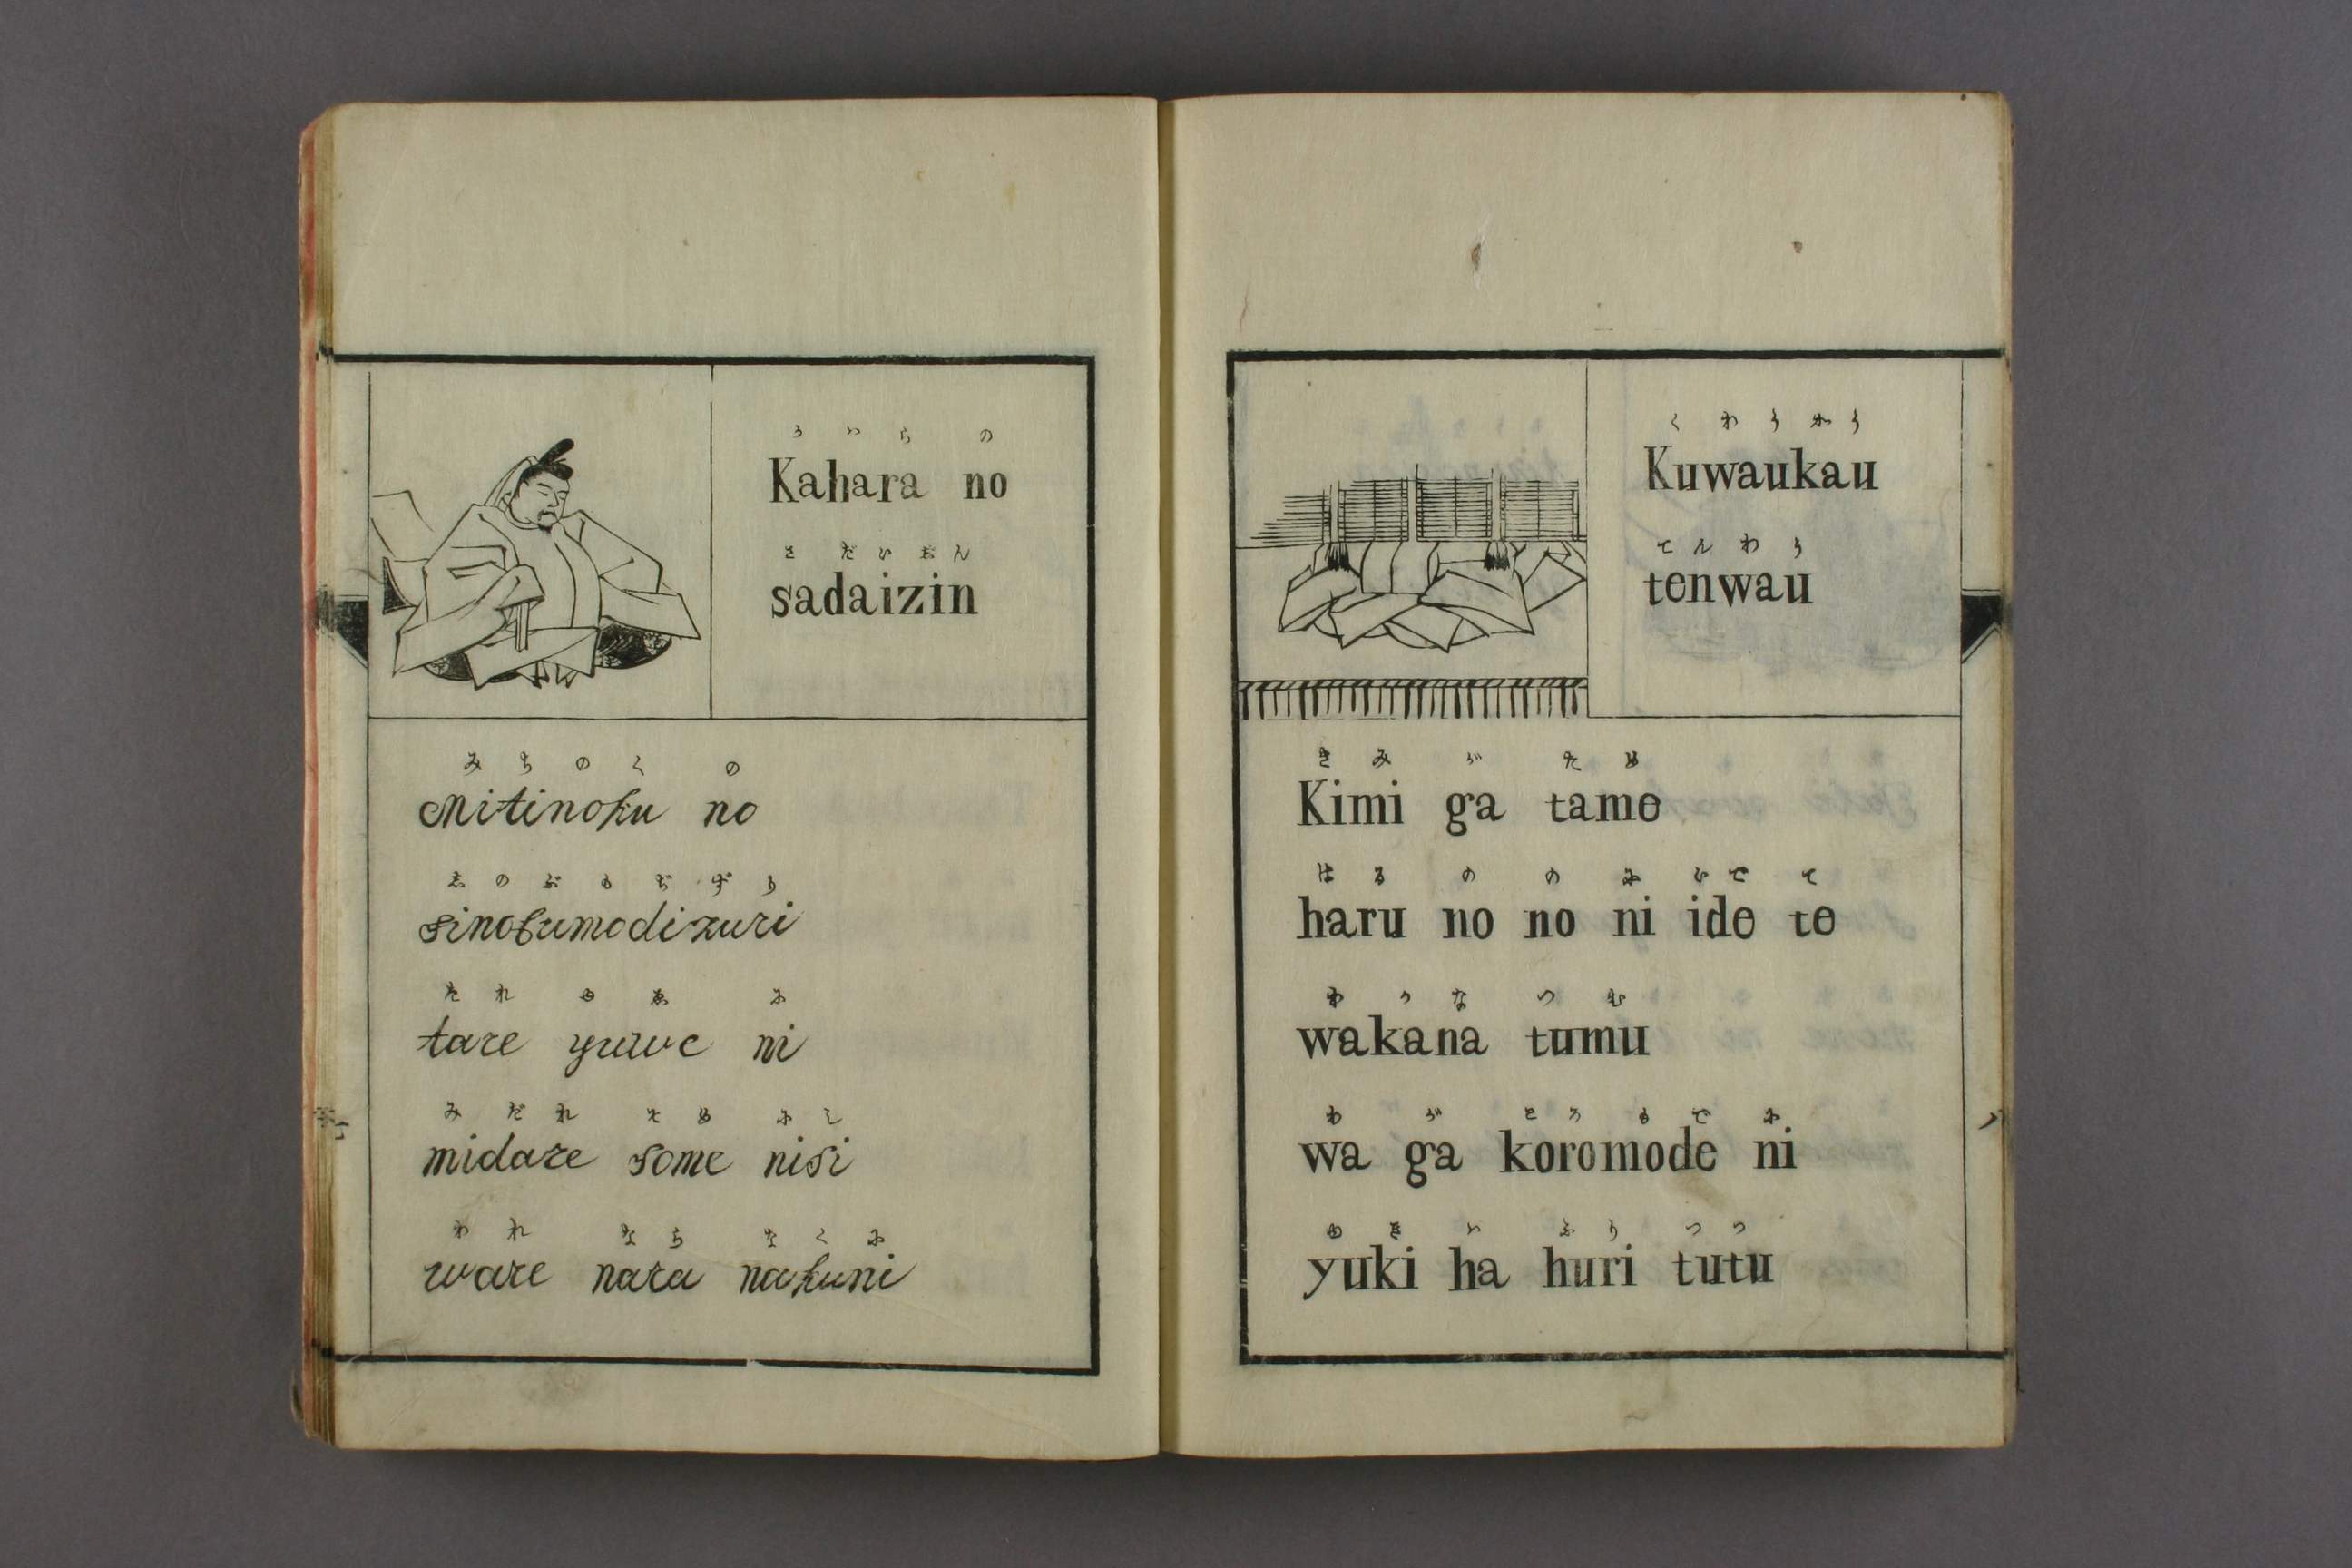 かはら の
Kahara no
さ だいじん
sadaizin
みちのく の
Mitinoku no
しのぶもぢずり
sinobumodizuri
たれ ゆゑ に
tare yuwe ni
みだれ そめ にし
midare some nisi
われ なら なくに
ware nara nakuni
くわうかう
Kuwaukau
てんわう
tenwau
きみ が ため
Kimi ga tame
はる の の に いで て
haru no no ni ide te
わかな つむ
wakana tumu
わ が ころもで に
wa ga koromode ni
ゆき ハ ふり つつ
yuki ha huri tutu